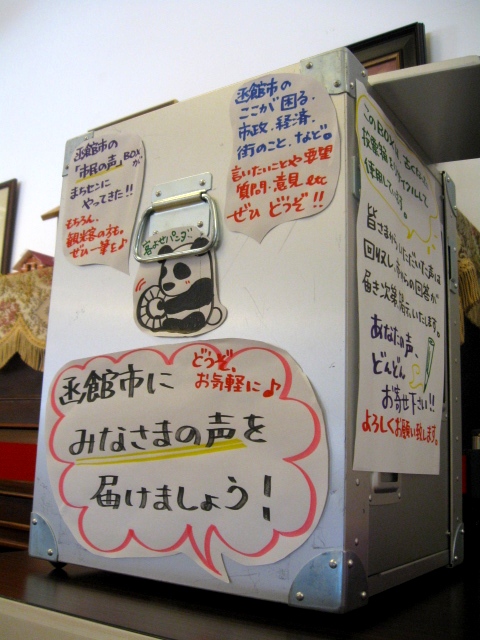 函館市の
「市民の声」BOXが
まちセンに
やってきた!!
もちろん、
観光客の方も、
ぜひ一筆を♪
函館市の
ここが困る.
市政、経済.
街のこと、など。
言いたいことや要望
質問・意見 etc
ぜひ どうぞ!!
客よせパンダ
どうぞ、
お気軽に♪
函館市に
みなさまの声を
届けましょう!
このBOXは、
使用しています。
皆さまからいただいた声は
回収し、市からの回答が
届き次第掲示いたします。
あなたの声、
どんどん
お寄せ下さい!!
よろしくお願い致します。